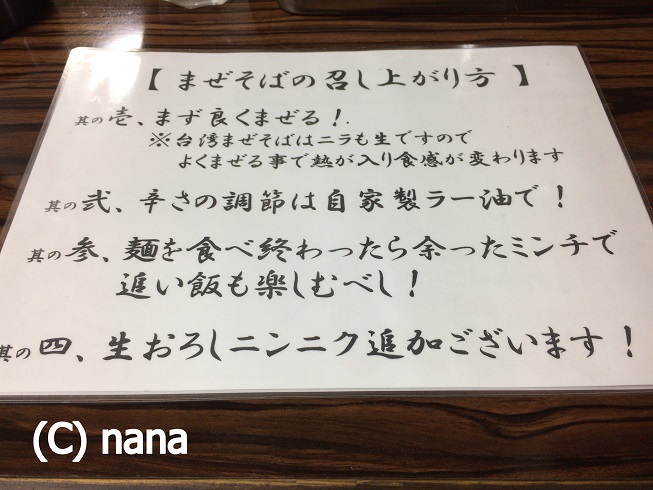 【 まぜそばの召し上がり方 】
其の壱、まず良くまぜる！
※台湾まぜそばはニラも生ですので
よくまぜる事で熱が入り食感が変わります
其の弐、辛さの調節は自家製ラー油で！
其の参、麺を食べ終わったら余ったミンチで
追い飯も楽しむべし！
其の四、生おろしニンニク追加ございます！
(C) nana